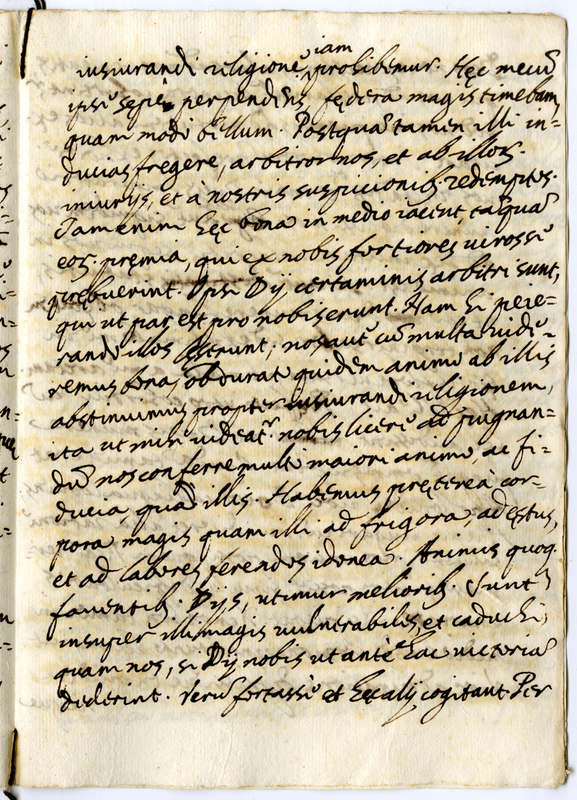 iusiurandi religione, iam prohibemur. Hęc mecũ
ipse sepe perpendens, fędera magis timebam,
quam modo bellum. Postquã tamen illi in=
ducias fregere, arbitror nos, et ab illor.
iniurijs, et à nostris suspicionib. redemptos.
Jam enim hęc bona in medio iacent, tãquã
eor. pręmia, qui ex nobis fortiores viros se
prębuerint. Ipsi Dij certaminis arbitri sunt,
qui ut par est pro nobis erunt. Nam hi peie=
rando illos lęserunt; nos autẽ cũ multa vide=
remus bona, obdurato quidem animo ab illis
abstinuimus propter iusiurandi religionem,
ita ut mihi videatr. nobis licere ad pugnan=
dũ nos conferre multo maiori animo, ac fi=
ducia quã illis. Habemus pręterea cor=
pora magis quam illi ad frigora, ad ęstus,
et ad labores ferendos idonea. Animis quoq.
faventib. Dijs, utimur meliorib. Sunt
insuper illi magis vulnerabiles, et caduchi,
quam nos, si Dij nobis ut ante hac victoriã
dederint. Verũ fortasse et hęc alij cogitant. Per